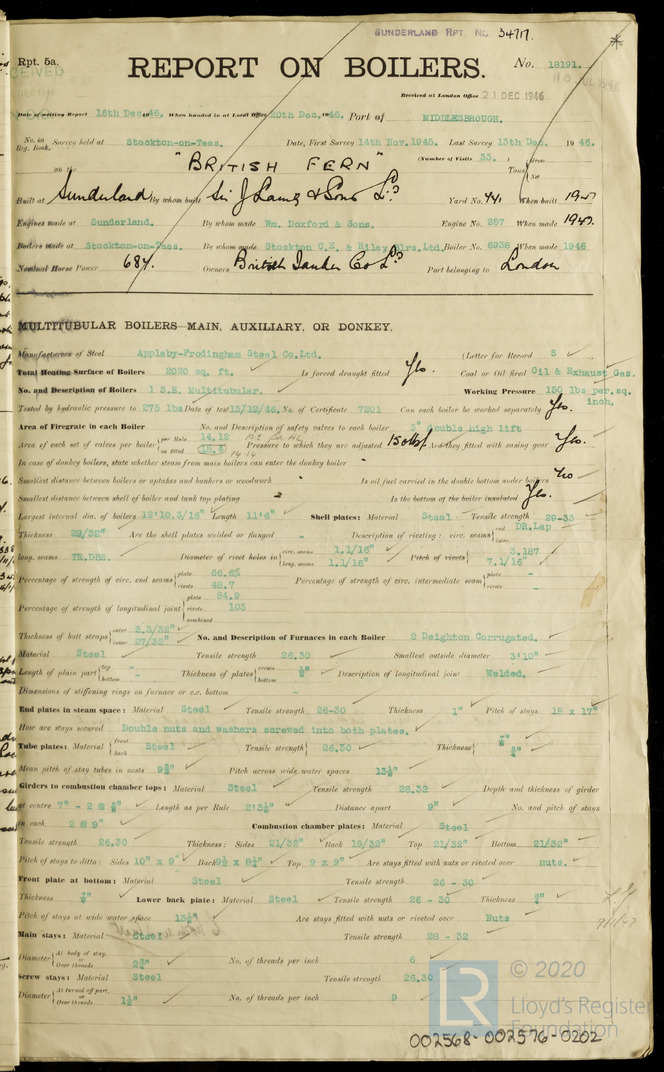 SUNDERLAND RPT. No 34717.
*
Rpt. 5a.
REPORT ON BOILERS.
No. 18191.
Received at London Office 21 DEC 1946
Date of writing Report 16th Dec. 1946, When handed in at Local Office 20th Dec. 1946. Port of MIDDLESBROUGH.
No. in Reg. Book. Survey held at Stockton-on-Tees. Date, First Survey 14th Nov. 1945. Last Survey 13th Dec. 1946.
on the "BRITISH FERN" (Number of Visits 33. ) Tons { Gross Net
Built at Sunderland By whom built Sir J Laing & Sons Ld. Yard No. 741 When built 1947
Engines made at Sunderland. By whom made Wm. Doxford & Sons. Engine No. 257 When made 1947.
Boilers made at Stockton-on-Tees. By whom made Stockton C.E. & Riley Blrs. Ltd. Boiler No. 6938 When made 1946
Nominal Horse Power 687. Owners British Tanker Co Ld. Port belonging to London
MULTITUBULAR BOILERS—MAIN, AUXILIARY, OR DONKEY.
Manufacturers of Steel Appleby-Frodingham Steel Co. Ltd. (Letter for Record S )
Total Heating Surface of Boilers 2020 sq. ft. Is forced draught fitted Yes. Coal or Oil fired Oil & Exhaust Gas.
No. and Description of Boilers 1 S.E. Multitubular. Working Pressure 150 lbs per.sq. inch.
Tested by hydraulic pressure to 275 lbs Date of test 13/12/46. No. of Certificate 7201 Can each boiler be worked separately Yes.
Area of Firegrate in each Boiler No. and Description of safety valves to each boiler 3" double high lift
Area of each set of valves per boiler { per Rule 14.12 as fitted 14.14 Pressure to which they are adjusted 150 lbs Are they fitted with easing gear Yes.
In case of donkey boilers, state whether steam from main boilers can enter the donkey boiler -
Smallest distance between boilers or uptakes and bunkers or woodwork - Is oil fuel carried in the double bottom under boilers No
Smallest distance between shell of boiler and tank top plating - Is the bottom of the boiler insulated Yes.
Largest internal dia. of boilers 12'10.3/16" Length 11'6" Shell plates: Material Steel Tensile strength 29-33
Thickness 29/32" Are the shell plates welded or flanged - Description of riveting: circ. seams { end DR.Lap inter. -
long. seams TR.DBS. Diameter of rivet holes in { circ. seams 1.1/16" long. seams 1.1/16" Pitch of rivets { 3.187 7.1/16"
Percentage of strength of circ. end seams { plate 66.6% rivets 48.7 Percentage of strength of circ. intermediate seam { plate - rivets -
Percentage of strength of longitudinal joint { plate 84.9 rivets 103 combined
Thickness of butt straps { outer 2.3/32" inner 27/32" No. and Description of Furnaces in each Boiler 2 Deighton Corrugated.
Material Steel Tensile strength 26.30 Smallest outside diameter 3'10"
Length of plain part { top - bottom - Thickness of plates { crown bottom ½" Description of longitudinal joint Welded.
Dimensions of stiffening rings on furnace or c.c. bottom -
End plates in steam space: Material Steel Tensile strength 26-30 Thickness 1" Pitch of stays 18 x 17"
How are stays secured Double nuts and washers screwed into both plates.
Tube plates: Material { front back Steel Tensile strength { 26.30 Thickness {
Mean pitch of stay tubes in nests Pitch across wide water spaces 13½"
Girders to combustion chamber tops: Material Steel Tensile strength 28.32 Depth and thickness of girder
at centre 7" - 2 @ Length as per Rule Distance apart 9" No. and pitch of stays
in each 2 @ 9" Combustion chamber plates: Material Steel
Tensile strength 26.30 Thickness: Sides 21/32" Back 19/32" Top 21/32" Bottom 21/32"
Pitch of stays to ditto: Sides 10" x 9" Back Top 9 x 9" Are stays fitted with nuts or riveted over nuts.
Front plate at bottom: Material Steel Tensile strength 26 - 30
Thickness Lower back plate: Material Steel Tensile strength 26 - 30 Thickness
Pitch of stays at wide water space 13½" Are stays fitted with nuts or riveted over Nuts
Main stays: Material Steel Tensile strength 28 - 32
Diameter { At body of stay, or Over threads No. of threads per inch 6
Screw stays: Material Steel Tensile strength 26.30
Diameter { At turned off part, or Over threads No. of threads per inch 9
LR
© 2020
Lloyd's Register
Foundation
002568-002576-0202